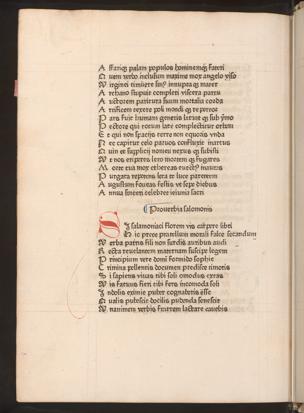 Affatiq; palam populos hominemq; fateri
Cum verbo inclusum maxime mox angelo viso
Virginei timuere sinus innupta q; mater
Arcano stupuit compleri viscera partu
Auctorem paritura suum mortalia corda
Artificem texere poli mundi q; repertor
Pars fuit humani generis latuit q; sub uno
Pectore qui totum late complectitur orbem
Et qui non spacijs terre non equoris vnda
Nec capitur celo paruos confluxit in artus
Quin et supplicij nomen nexus q; subisti
Vt nos eriperes leto mortem q; fugares
Morte tua mox ethereas euectus in auras
Purgata repetens leta te luce parentem
Augustum foueas festis vt sepe diebus
Annua sinceri celebret ieiunia sacri
Prouerbia salomonis
Si salamoniaci florem vis carpere libri
Hic prece pratellum morali falce secandum
Verba patris fili non surdis auribus audi
Recta reuelantem maternam suscipe legem
Principium vere domini formido sophie
Crimina pellentis documen predisce timoris
Si sapiens viuas tibi soli comodus extas
Vis fatuus fieri tibi fers incomoda soli
Indolis eximie puter cognoteris esse
Qualis pubescit docilis pudenda senescit
Vnanimem verbis fratrem lactare cauebis